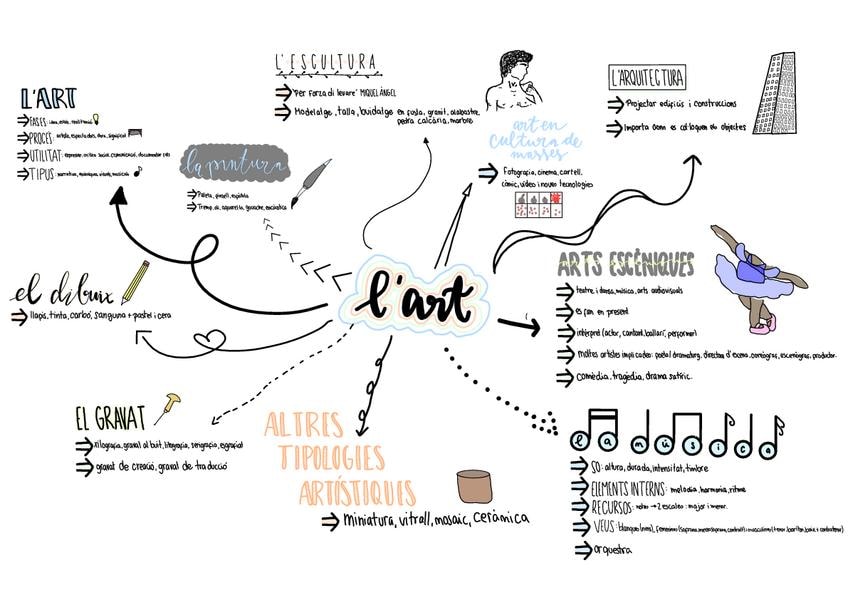 L'ART
FASES: idea, estil, tradició
PROCÉS: artista, espectadors, obra, significat
UTILITAT: expressar, crítica social, comunicació, documentar
TIPUS: narratius, tècniques, visuals, musicals
la pintura
Paleta, pinzell, espàtula
Tremp, oli, aquarel·la, guache, encàustica
el dibuix
llapis, tinta, carbó, sanguina + pastel i cera
EL GRAVAT
Xilografia, gravat al buit, litografia, serigrafia, esgrafiat
gravat de creació, gravat de traducció
L'ESCULTURA
"Per forza di levare" MIQUEL ÀNGEL
Modelatge, talla, buidatge en fusta, granit, alabastre,
pedra calcària, marbre
art en
cultura de
masses
Fotografia, cinema, cartell,
còmic, vídeo i noves tecnologies
L'ARQUITECTURA
Projectar edificis i construccions
Importa com es col·loquen els objectes
l'art
ARTS ESCÈNIQUES
teatre i dansa, música, arts audiovisuals
es fan en present
intèrpret (actor, cantant, ballarí, performer)
moltes artistes implicades: poeta/dramaturg, director d'escena, coreògraf, escenògraf, productor.
Comèdia, tragèdia, drama satíric.
ALTRES
TIPOLOGIES
ARTÍSTIQUES
miniatura, vitrall, mosaic, ceràmica
la música
SO: altura, durada, intensitat, timbre
ELEMENTS INTERNS: melodia, harmonia, ritme
RECURSOS: notes → 2 escales: major i menor.
VEUS: blanques (nens), femenines (soprano, mezzosoprano, contralt) i masculines (tenor, baríton, baix + contratenor)
orquestra